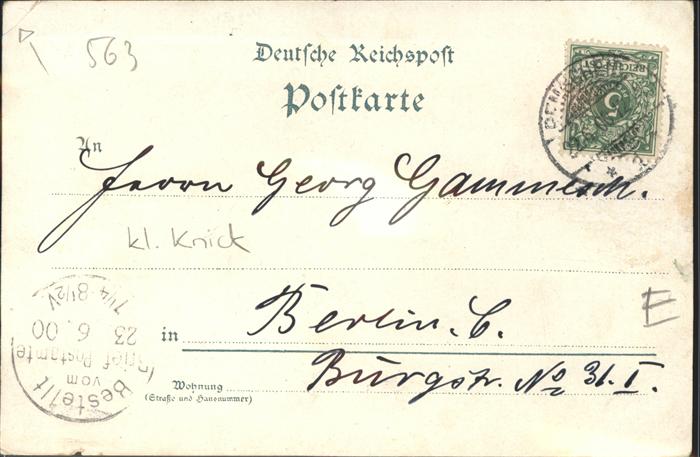 563
Deutsche Reichspost
Postkarte
An
Herrn Georg
kl. Knick
in Berlin. C.
Wohnung Burgstr. No 31. I.
(Straße und Hausnummer)
E
REICHSPOST
5
Bestellt
vom
(Brief) Postamte
23 6. 00
7 1/4-8 1/2 V